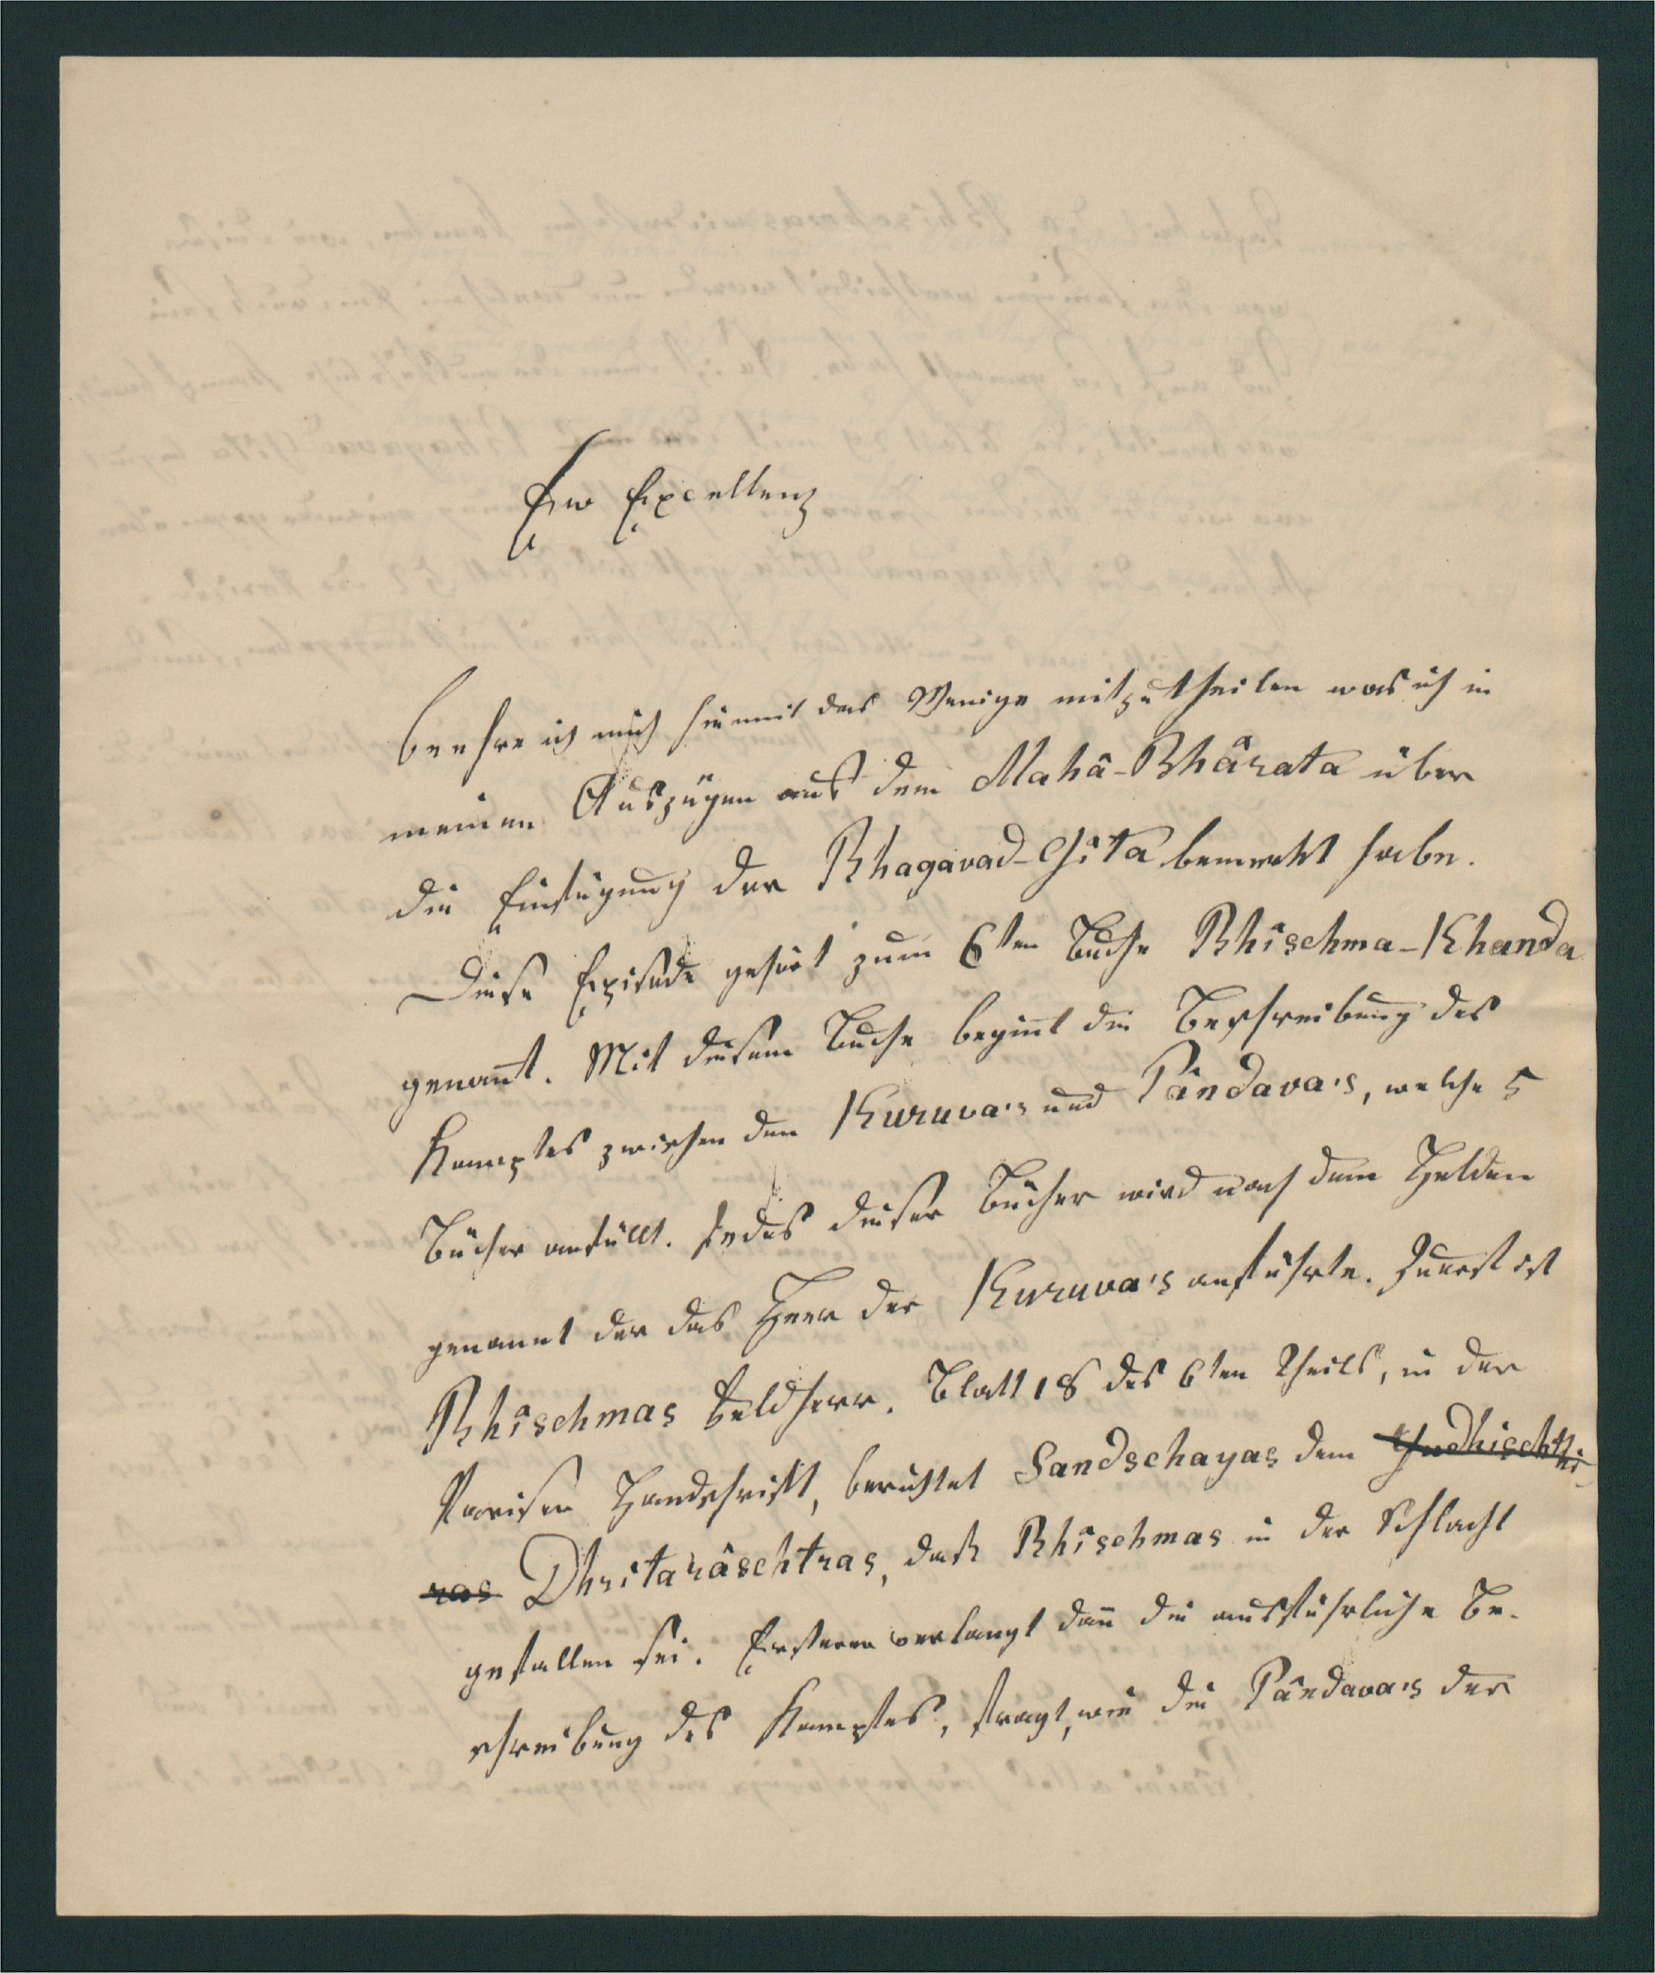 Ew Excellenz
beehre ich mich hiemit das Wenige mitzutheilen was ich in
meinen Auszügen aus dem Mahâ-Bhârata über
die Einfügung der Bhagavad-Gîtâ bemerkt habe.
Diese Episode gehört zum 6ten Buche Bhîschma-Khanda
genan̄t. Mit diesem Buche begin̄t die Beschreibung des
Kampfes zwischen den Kuruva's und Pândava's, welche 5
Bücher anfüllt. Jedes dieser Bücher wird nach dem Helden
genannt der das Heer der Kuruva's anführte. Zuerst ist
Bhîschmas Feldherr. Blatt 18 des 6ten Theils, in der
Pariser Handschrift, berichtet Sandschayas dem Yudhischthi
ras Dhritarâschtras, daß Bhîschmas in der Schlacht
gefallen sei. Ersterer verlangt dan̄ die ausführliche Be-
schreibung des Kampfes, fragt, wie die Pândava's der